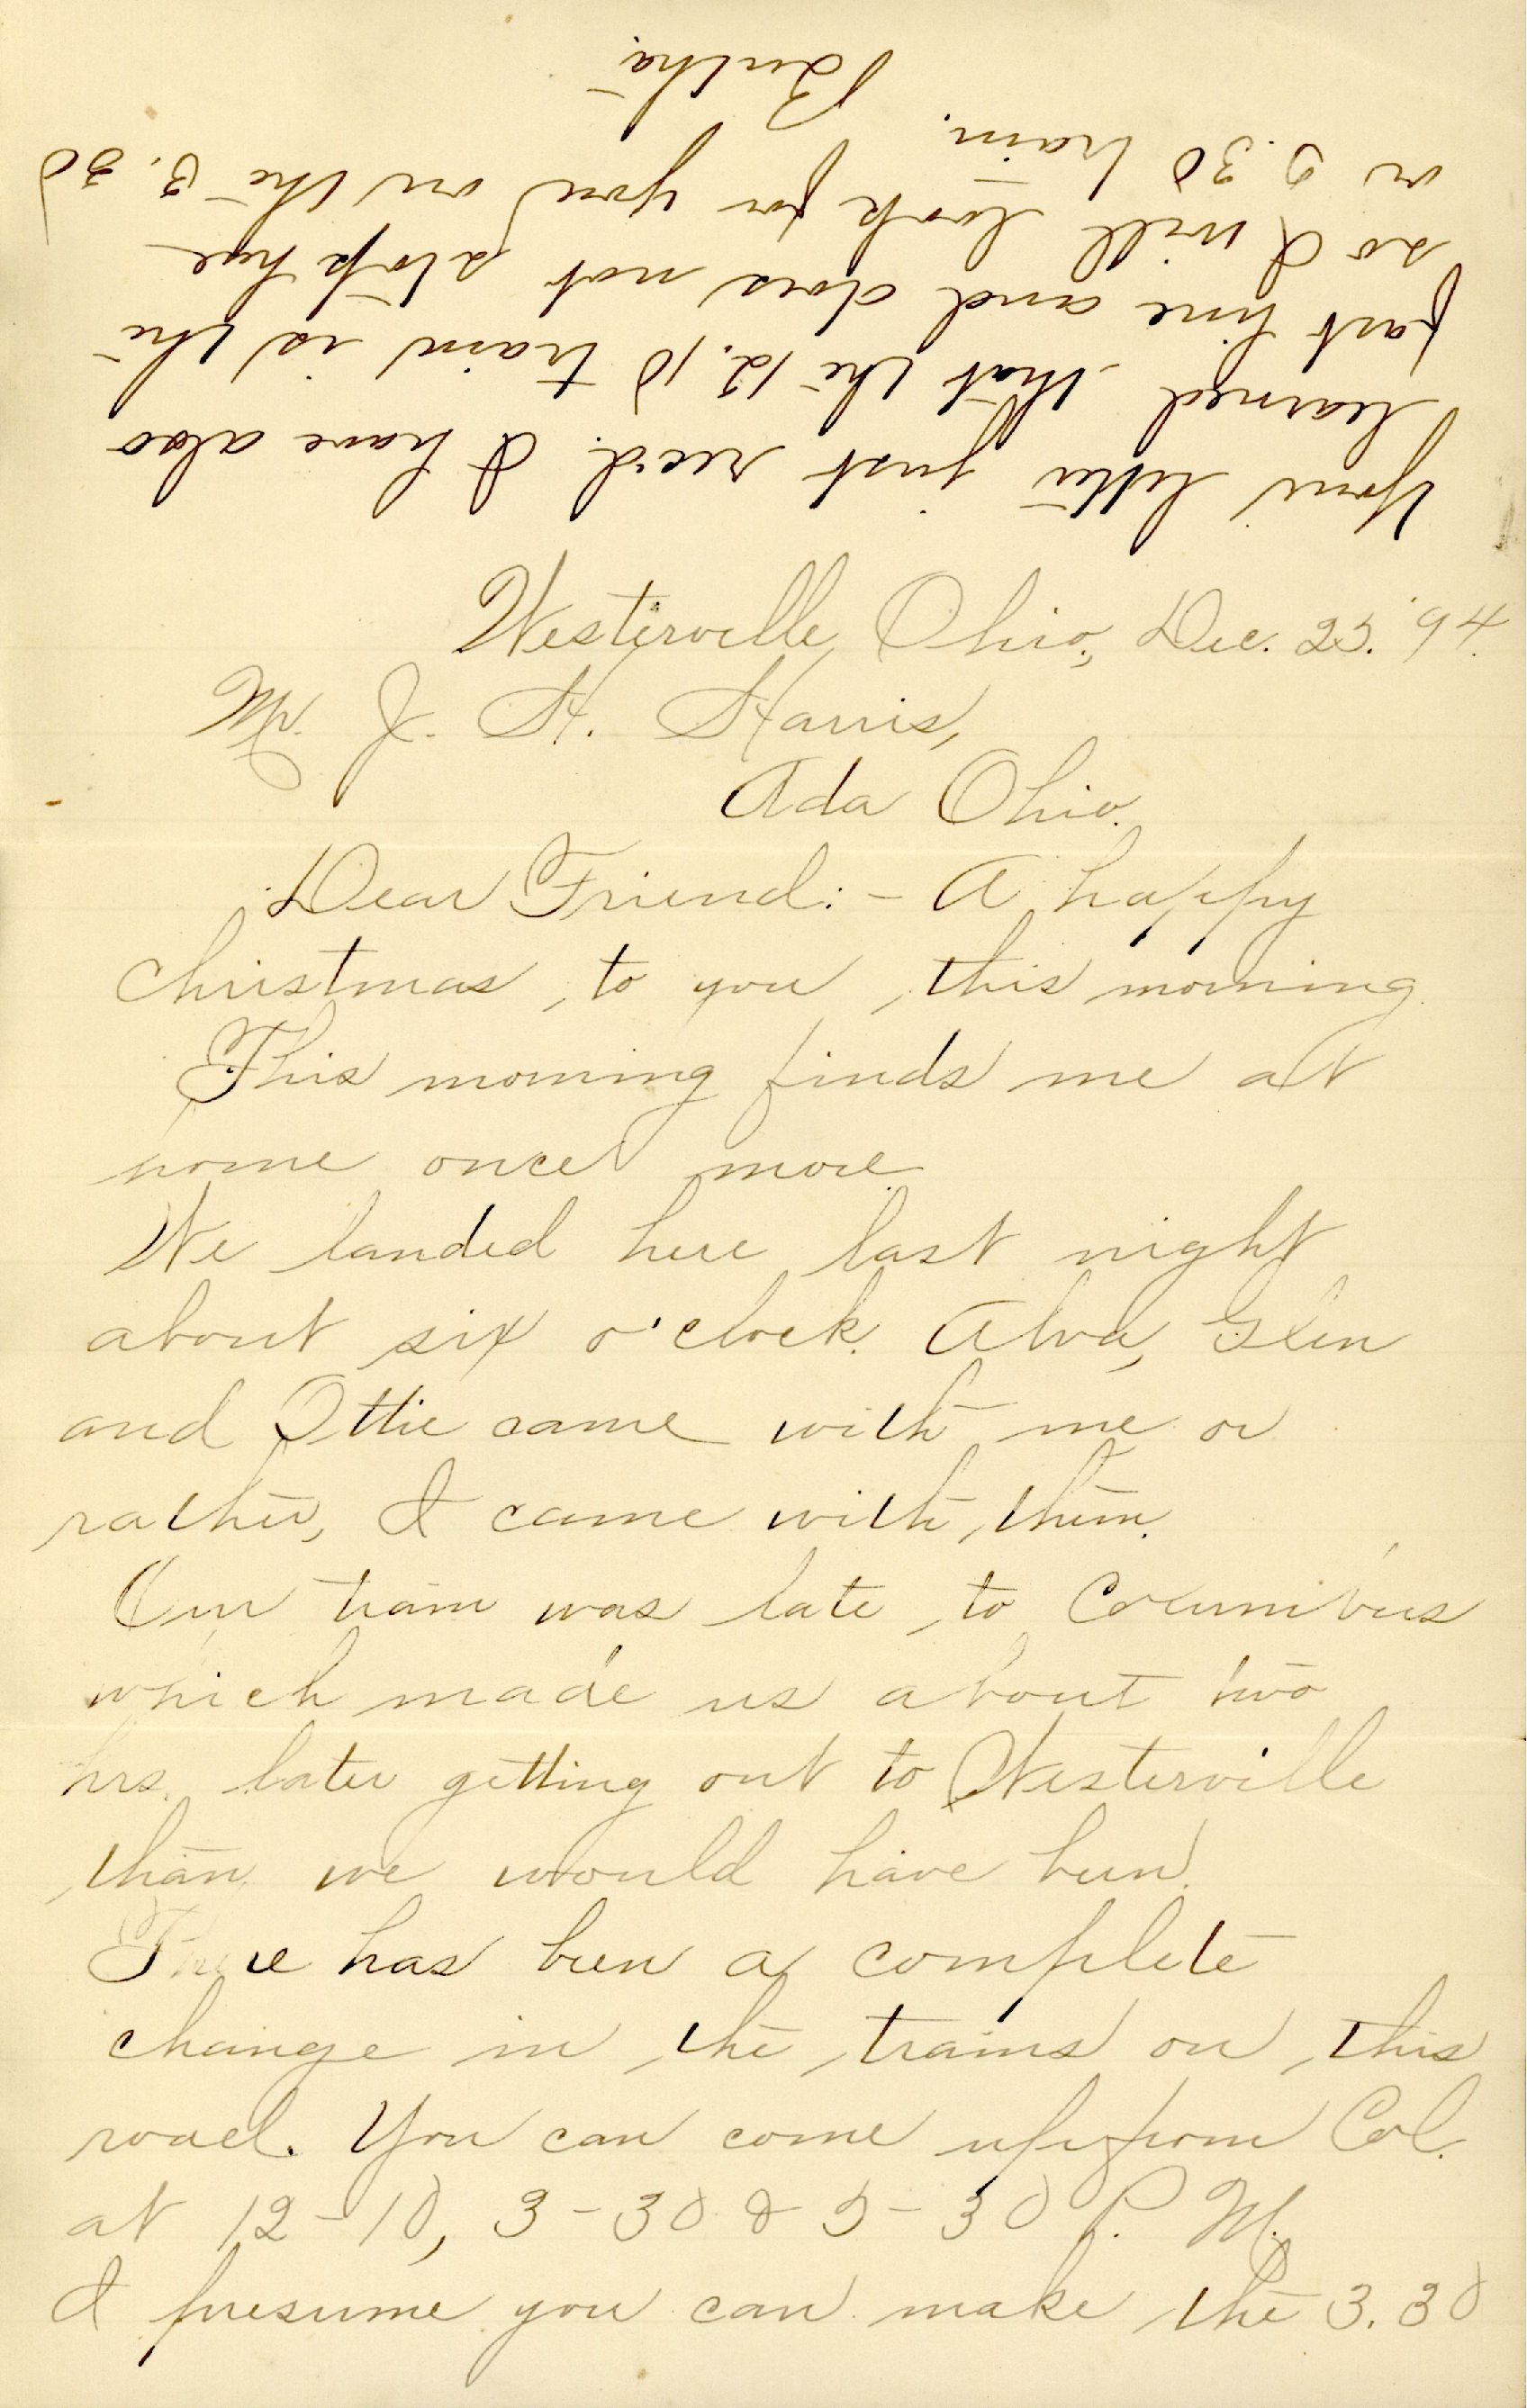 Westerville, Ohio, Dec. 25. '94.
Mr. J. H. Harris,
Ada Ohio.
Dear Friend:- A happy
christmas, to you, this morning.
This morning finds me at
home once more
We landed here last night
about six o'clock. Alva, Glen
and Ottie came with me or
rather, I came with, them.
Our train was late to Columbus
which made us about two
hrs. later getting out to Westerville
than we would have been.
There has been a complete
change in the trains on this
road. You can come up from Col.
at 12-10, 3-30 & 5-30 P. M.
I presume you can make the 3.30
Your letter just rec'd. I have also
learned that the 12.10 train is the
fast line and does not stop here
so I will look for you on the 3.30
or 5.30 train.
Bertha.